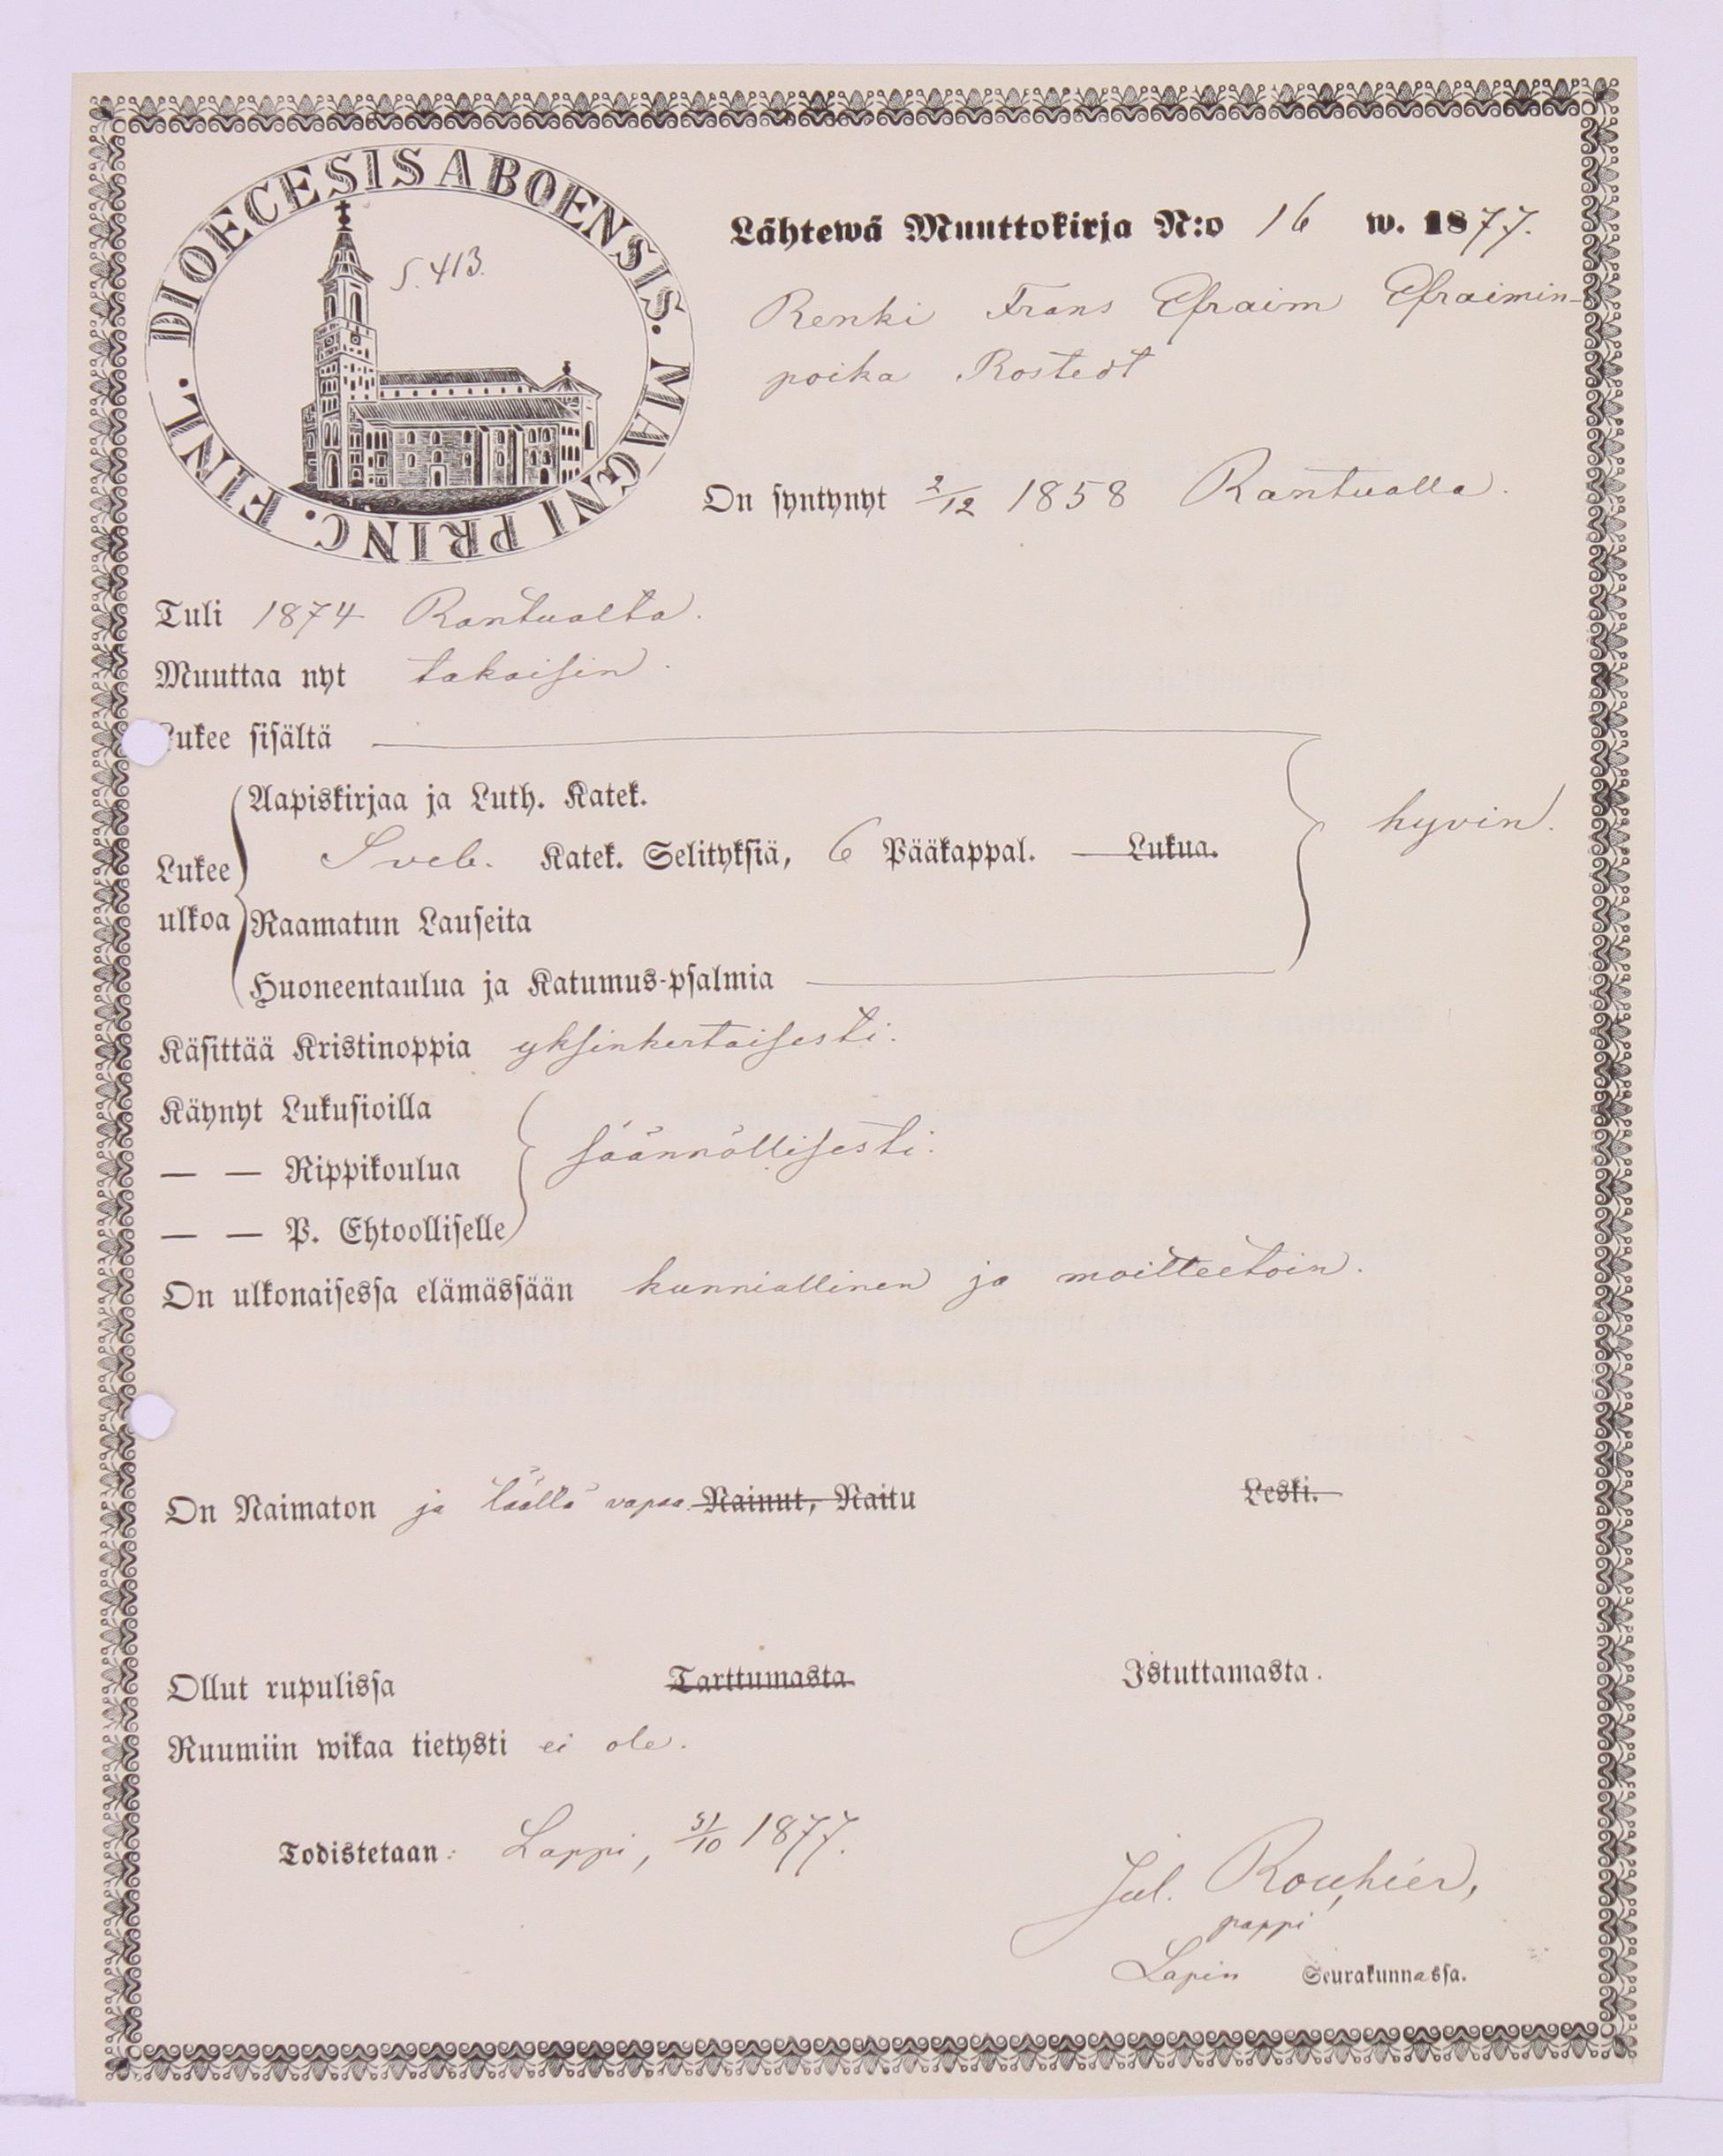 DIOECESIS ABOENSIS. MAGNI PRINC. FINL.
S. 413.
Lähtewä Muuttokirja N:o 16 w. 1877.
Renki Frans Efraim Efraimin-
poika Rostedt
On syntynyt 2/12 1858 Rantualla.
Tuli 1874 Rantualta.
Muuttaa nyt takaisin.
Lukee sisältä
Aapiskirjaa ja Luth. Katek.
Sveb. Katek. Selityksiä, 6 Pääkappal. Lukua.
hyvin.
Lukee
ulkoa
Raamatun Lauseita
Huoneentaulua ja Katumus-psalmia
Käsittää Kristinoppia yksinkertaisesti.
Käynyt Lukusioilla
— — Rippikoulua säännöllisesti.
— — P. Ehtoolliselle
On ulkonaisessa elämässään kunniallinen ja moitteetoin.
On Naimaton ja täällä vapaa. Nainut, Naitu Leski.
Ollut rupulissa Tarttumasta Istuttamasta.
Ruumiin wikaa tietysti ei ole.
Todistetaan: Lappi, 31/10 1877.
Jul. Rouhiér,
pappi
Lapin Seurakunnassa.